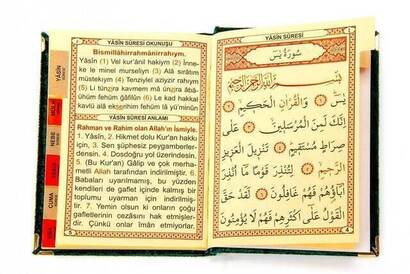 YÂSÎN SÛRESİ OKUNUŞU
Bismillâhirrahmânirrahîym.
Yâsîn (1) Vel kur'ânil hakiym (2) İnne-
ke le minel murseliyn (3) Alâ sırâtın
müstekıym (4) Tenziylel aziyzir rahıym.
(5) Li tünzira kavmen mâ ünzira âbâ-
ühüm fehüm ğâfilûn (6) Le kad hakkal
kavlü alâ ekserihim fehüm lâ yü'minûn
YÂSÎN SÛRESİ ANLAMI
Rahman ve Rahim olan Allah'ın İsmiyle.
1. Yâsîn, 2. Hikmet dolu Kur'an hakkı
için, 3. Sen şüphesiz peygamberler-
densin. 4. Dosdoğru yol üzerindesin.
5. (Bu Kur'an) Gâlip ve çok merha-
metli Allah tarafından indirilmiştir. 6.
Babaları uyarılmamış, bu yüzden
kendileri de gaflet içinde kalmış bir
toplumu uyarman için indirilmiş-
tir. 7. Yemin olsun ki onların çoğu
gafletlerinin cezasını hak etmişler-
dir. Çünkü onlar îman etmiyorlar.
YÂSÎN
NEBE
CUMA
YÂSÎN SÛRESİ
سُورَةُ يس
بِسْمِ اللّٰهِ الرَّحْمٰنِ الرَّحِيمِ
يٰسٓ ۝ وَالْقُرْاٰنِ الْحَكِيمِ ۝
اِنَّكَ لَمِنَ الْمُرْسَلِينَ ۝ عَلٰى
صِرَاطٍ مُسْتَقِيمٍ ۝ تَنْزِيلَ الْعَزِيزِ
الرَّحِيمِ ۝ لِتُنْذِرَ قَوْمًا مَٓا اُنْذِرَ
اٰبَٓاؤُهُمْ فَهُمْ غَافِلُونَ ۝ لَقَدْ حَقَّ
الْقَوْلُ عَلٰٓى اَكْثَرِهِمْ فَهُمْ لَا يُؤْمِنُونَ